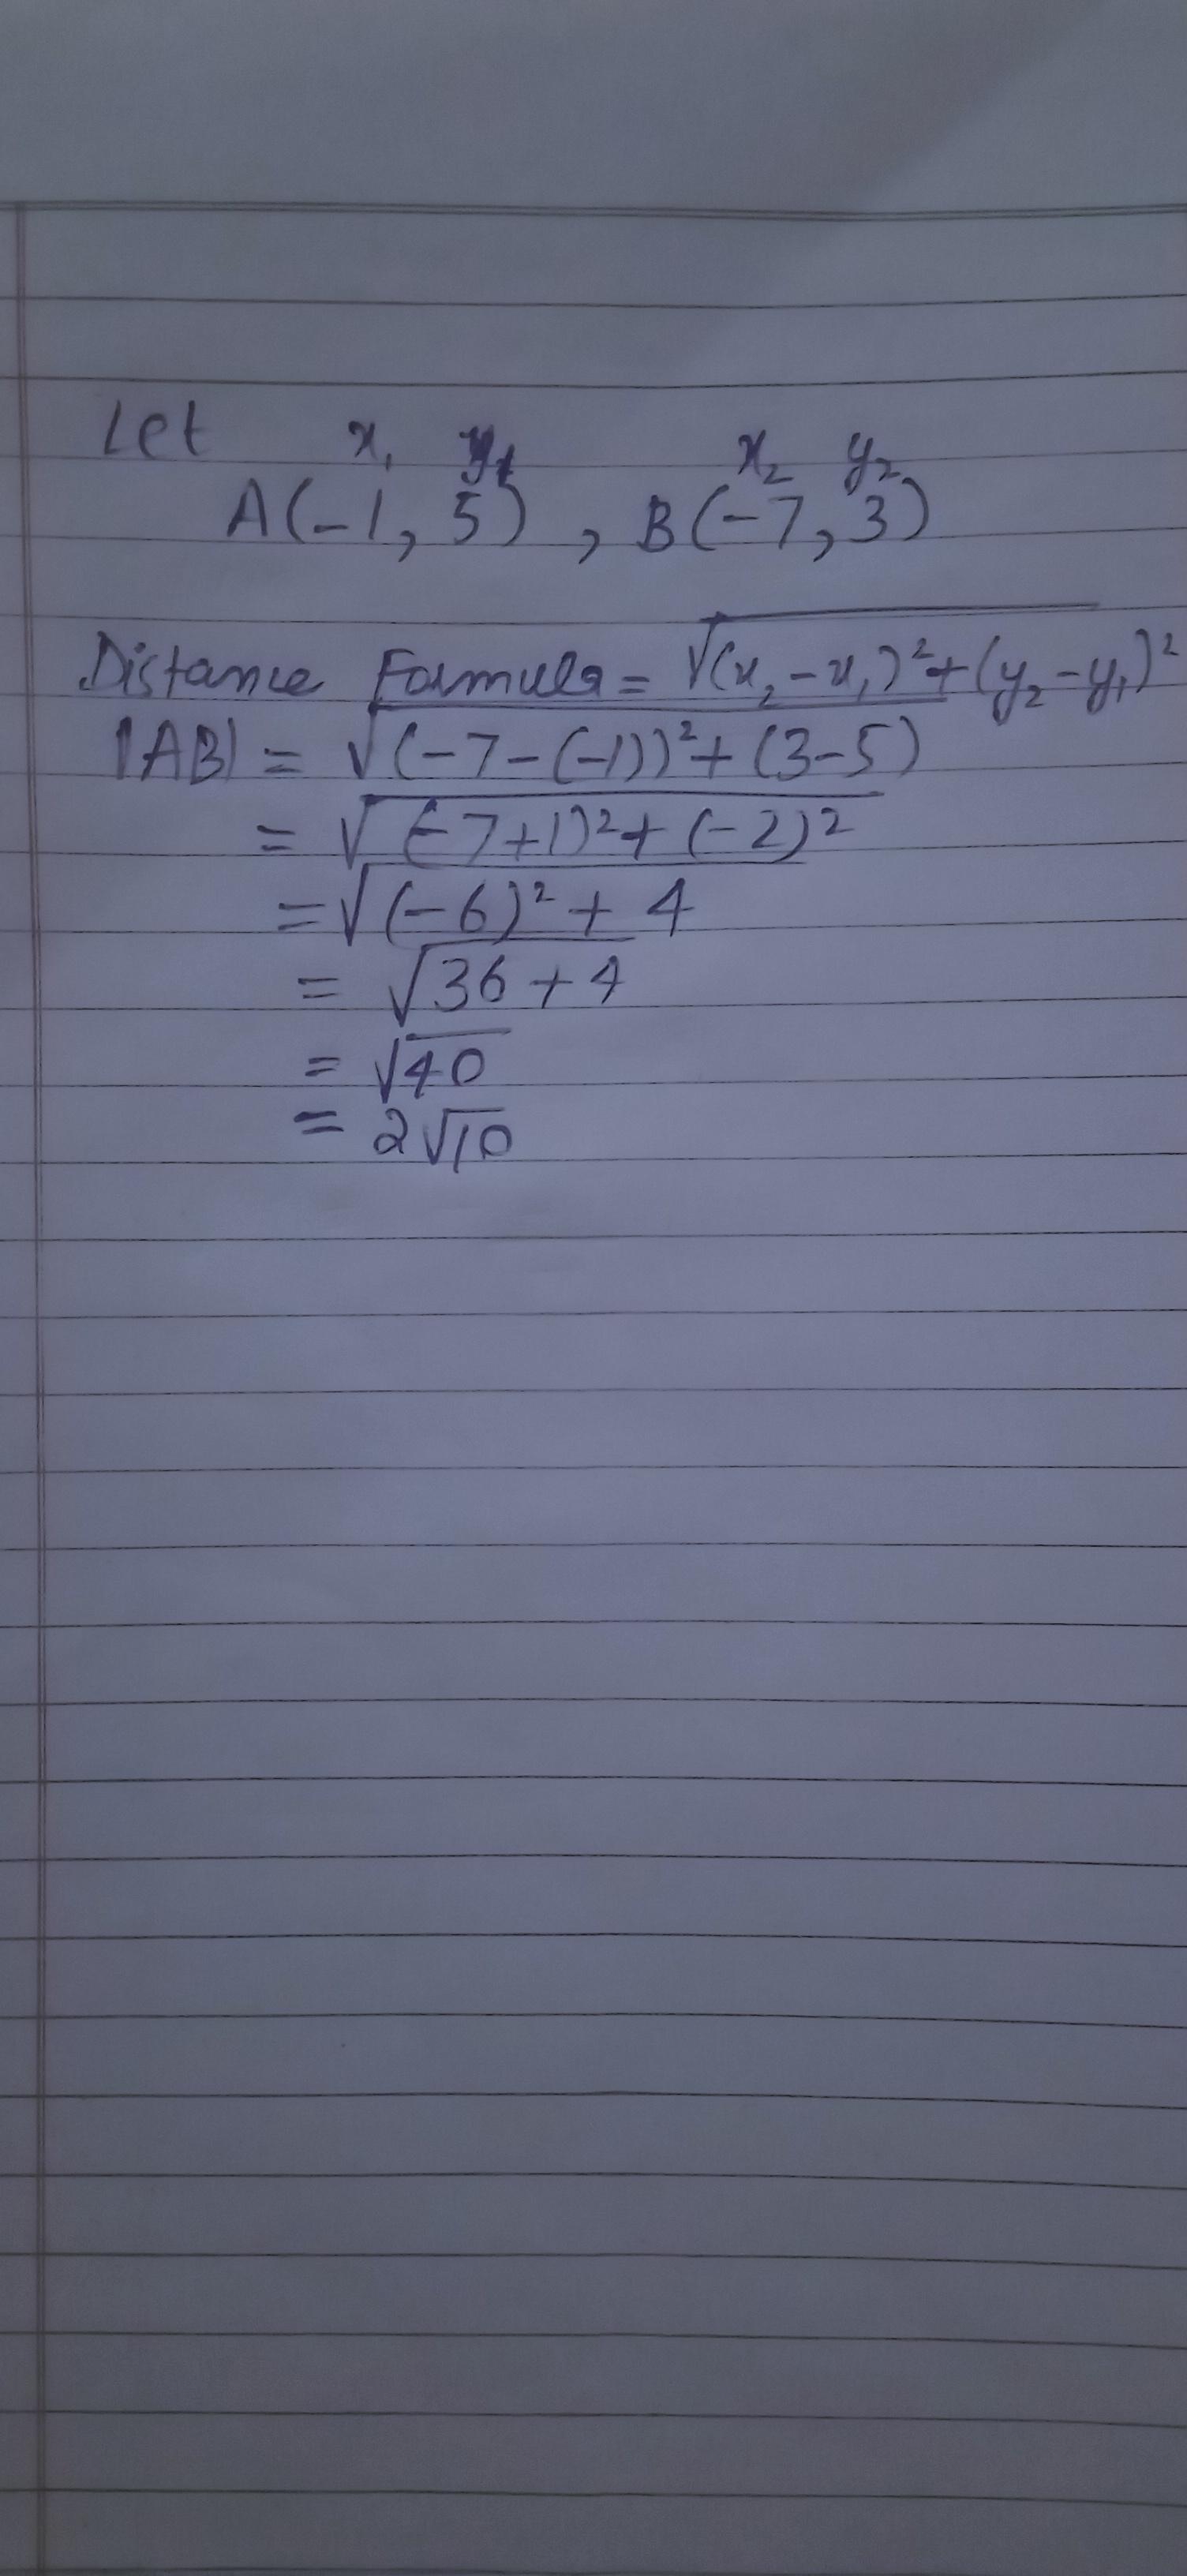 Let x₁ y₁ x₂ y₂
A(-1, 5) , B(-7, 3)
Distance Formula = √(x₂-x₁)²+(y₂-y₁)²
|AB| = √(-7-(-1))²+(3-5)
= √(-7+1)²+(-2)²
= √(-6)²+4
= √36+4
= √40
= 2√10